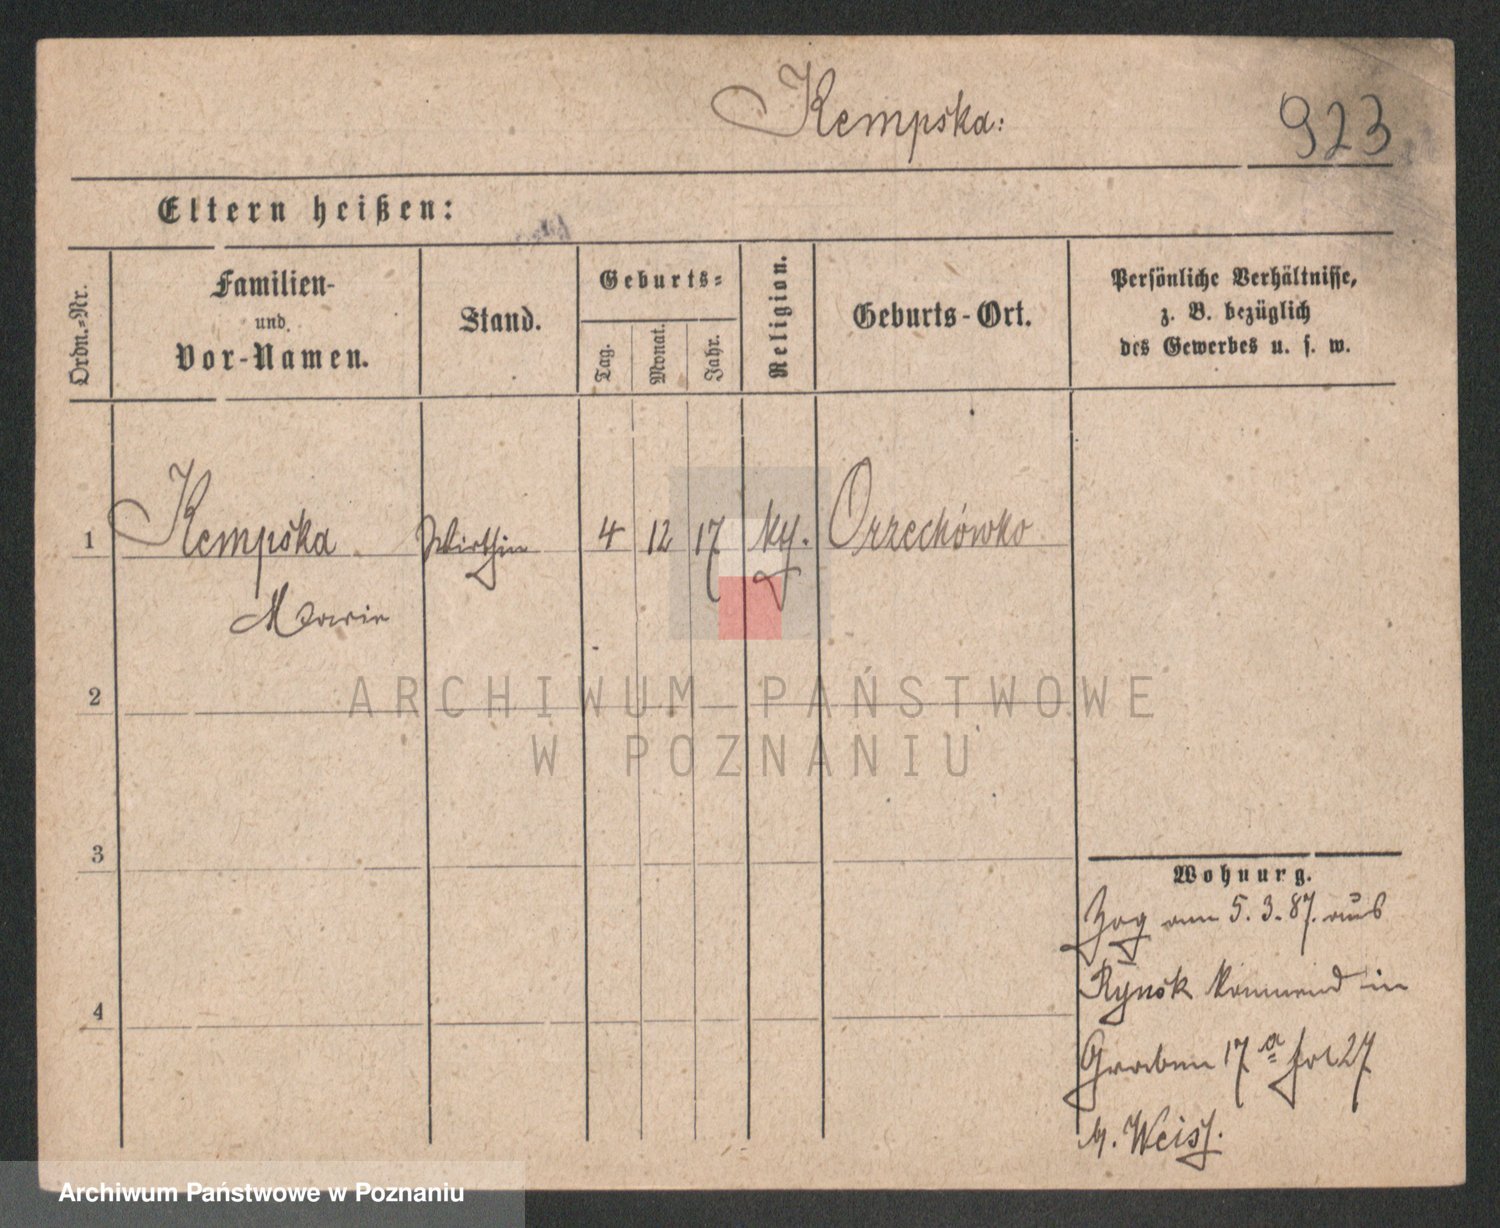 Kempska:
923
Eltern heißen:
Ordn.-Nr.
Familien-
und
Vor-Namen.
Stand.
Geburts-
Tag.
Monat.
Jahr.
Religion.
Geburts-Ort.
Persönliche Verhältnisse,
z. B. bezüglich
des Gewerbes u. s. w.
1 Kempska Wirthin 4 12 17 Orzechówko
Marie
2
3
4
Wohnung.
Zog am 5. 3. 87. aus
Rynsk kommend in
Graben 17 a fol 27
Weiss.
ARCHIWUM PAŃSTWOWE
W POZNANIU
Archiwum Państwowe w Poznaniu